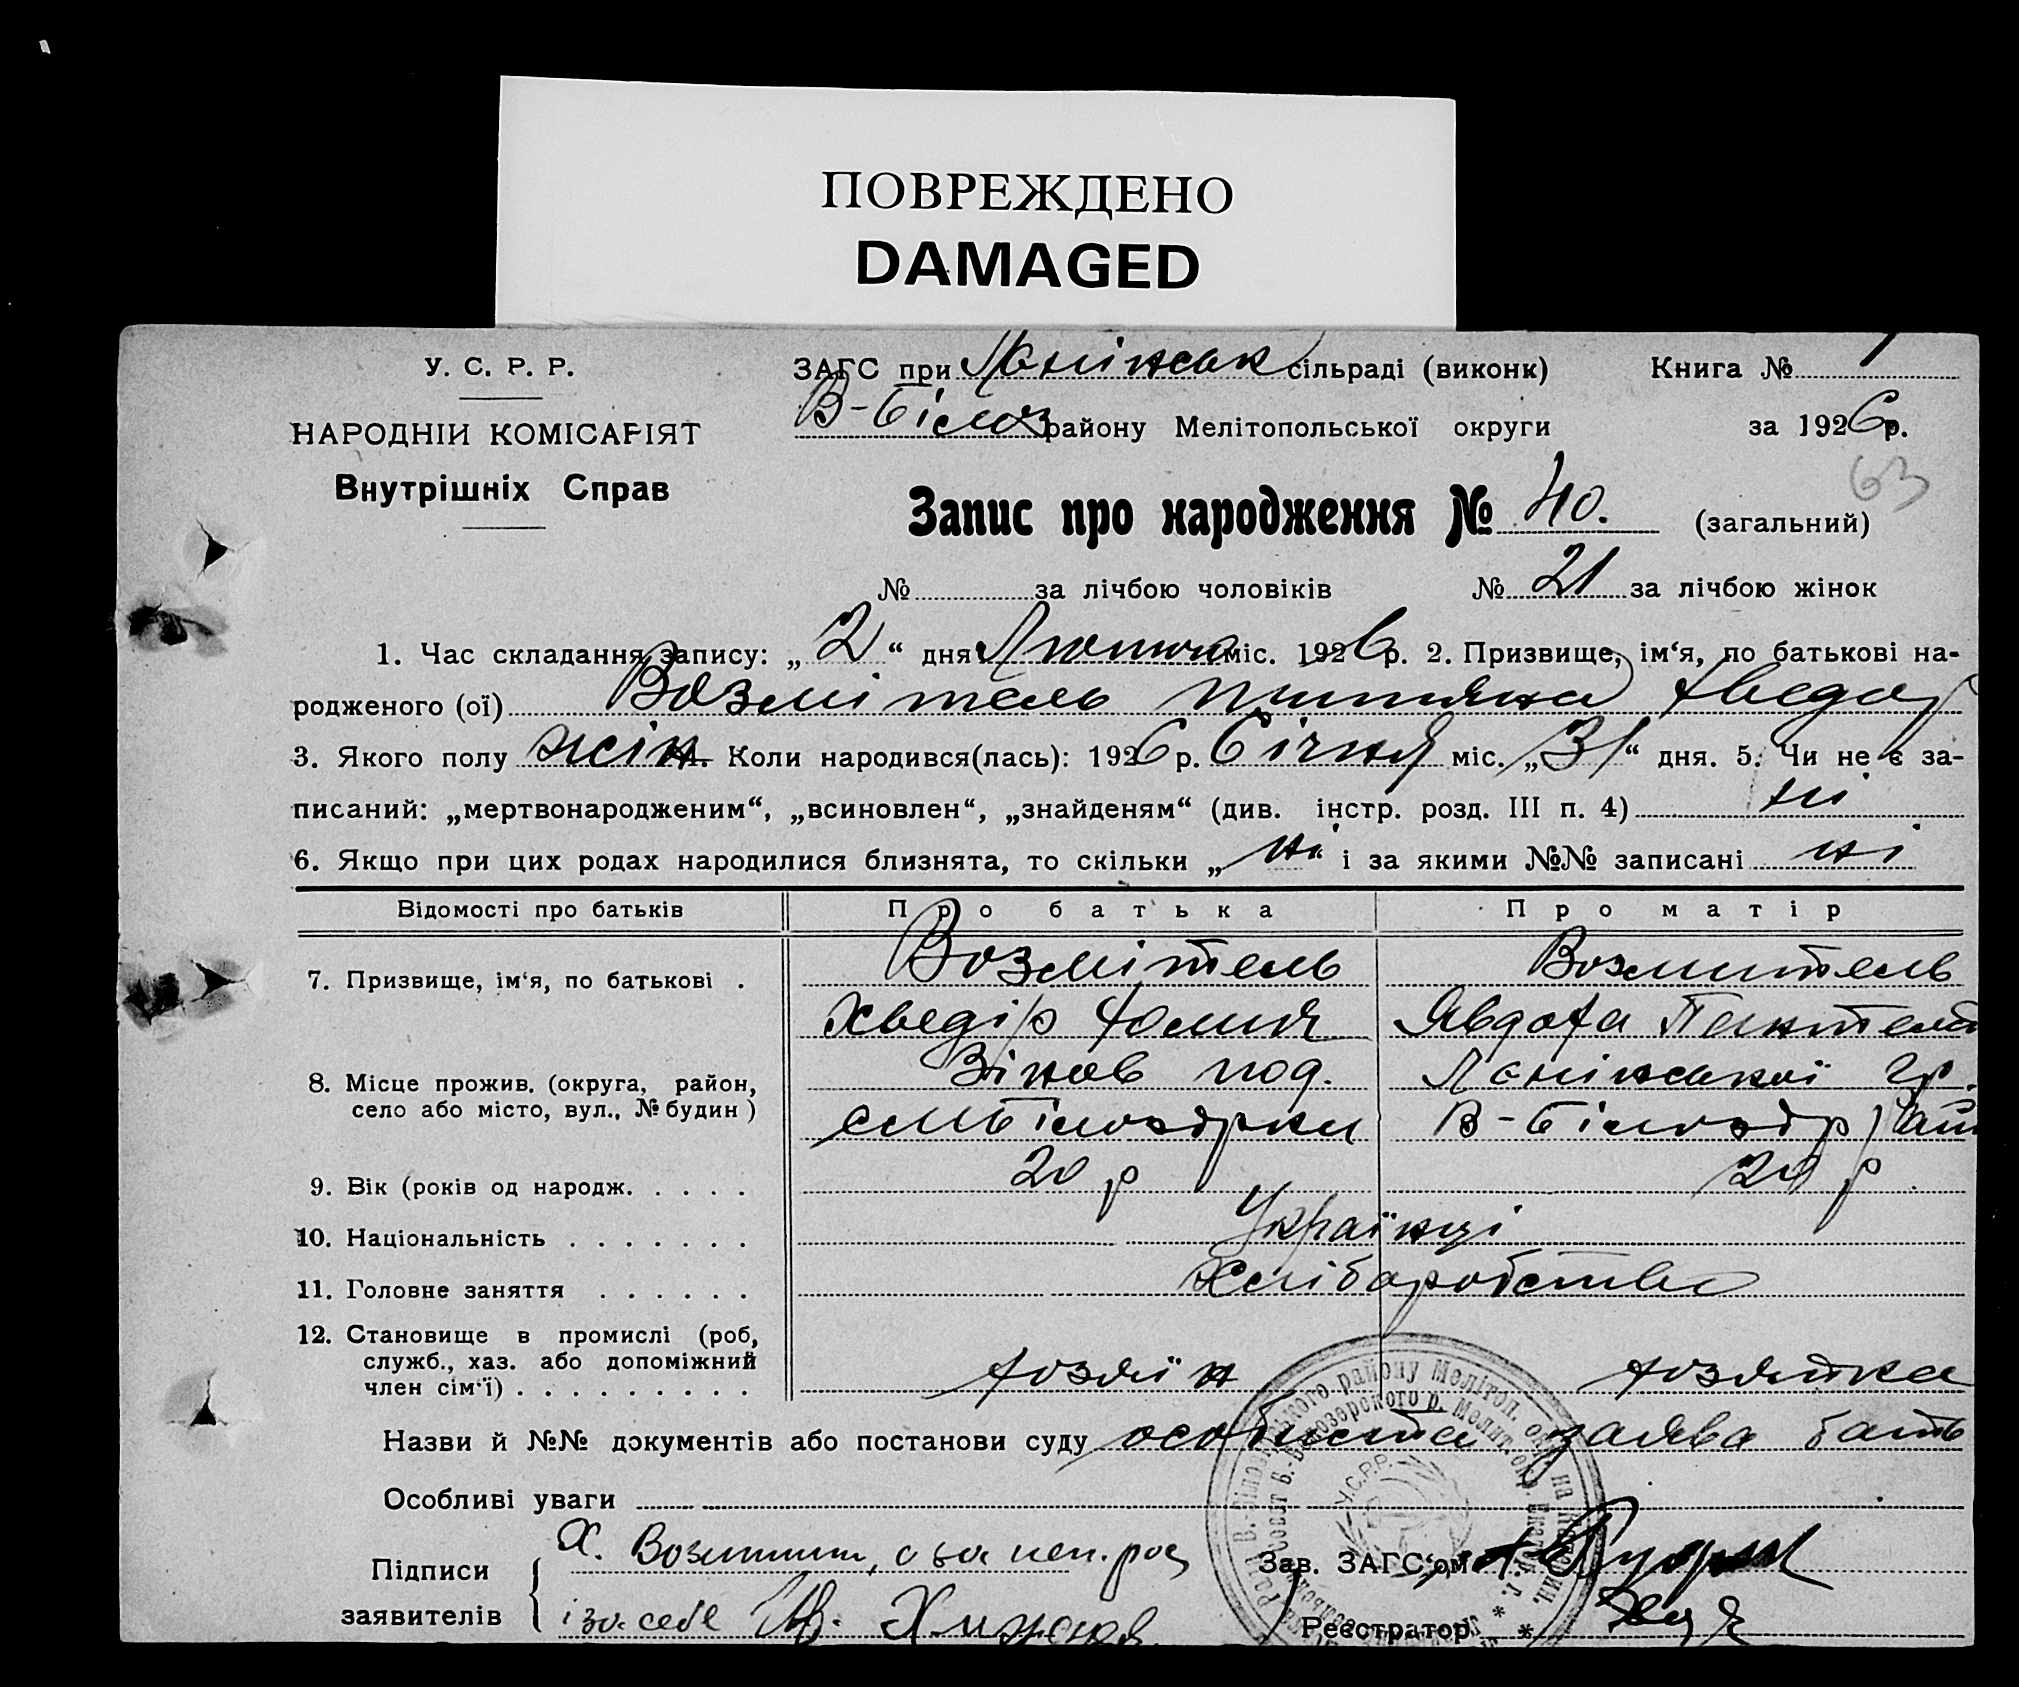 ПОВРЕЖДЕНО
DAMAGED
У. С. Р. Р.
НАРОДНІЙ КОМІСАРІЯТ
Внутрішніх Справ
ЗАГС при Лєнінськ сільраді (виконк) Книга № 1
В-Білоз району Мелітопольської округи за 1926 р.
63
Запис про народження № 40. (загальний)
№ за лічбою чоловіків № 21 за лічбою жінок
1. Час складання запису: „2“ дня Лютого міс. 1926 р. 2. Призвище, ім‘я, по батькові на-
родженого (ої) Возмітель Хведор
3. Якого полу жін. 4. Коли народився(лась): 1926 р. Січня міс. „31“ дня. 5. Чи не є за-
писаний: „мертвонародженим“, „всиновлен“, „знайденям“ (див. інстр. розд. III п. 4) ні
6. Якщо при цих родах народилися близнята, то скільки „ні“ і за якими №№ записані ні
Відомості про батьків Про батька Про матір
7. Призвище, ім‘я, по батькові . Возмітель Возмитель
Хведір Хомич Явдоха Пантел
8. Місце прожив. (округа, район, село або місто, вул., № будин) Лєнінської
В-Білозір рай
9. Вік (років од народж. . . . . 20 р 20 р
10. Національність . . . . . . . Українці
11. Головне заняття . . . . . . Хліборобство
12. Становище в промислі (роб,
служб., хаз. або допоміжний
член сім‘ї) . . . . . . . . . . хозяїн хозяйка
Назви й №№ документів або постанови суду особиста заява бать
Особливі уваги
У.С.Р.Р.
Підписи
заявителів
Х. Возмитит, а за неп. роз
і за себе
Зав. ЗАГС‘ом
Реєстратор